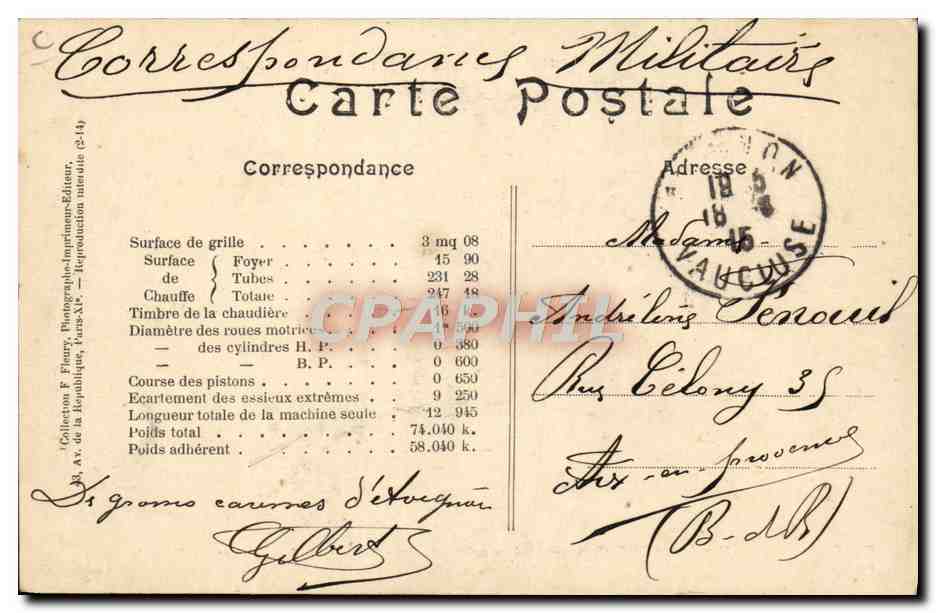 Correspondance Militaire
Carte Postale
Correspondance
Surface de grille . . . . . . . 3 mq 08
Surface de Chauffe { Foyer . . . . . . 15 90
Tubes . . . . . . 231 28
Totale . . . . . . 247 18
Timbre de la chaudière . . . . . 16 k.
Diamètre des roues motrices . . . 1m 500
— des cylindres H. P. . . . . 0 380
— — B. P. . . . . 0 600
Course des pistons . . . . . . . 0 650
Ecartement des essieux extrêmes . . 9 250
Longueur totale de la machine seule . 12 945
Poids total . . . . . . . . . 74.040 k.
Poids adhérent . . . . . . . . 58.040 k.
d'Avignon
Gilbert
Collection F Fleury, Photographe-Imprimeur-Editeur,
43, Av. de la République, Paris-XIe. — Reproduction interdite (2-14)
Adresse
Madame
Rue Célony 35
Aix-en-provence
(B-d-R)
18
18
15
VAUCLUSE
CPAPHIL